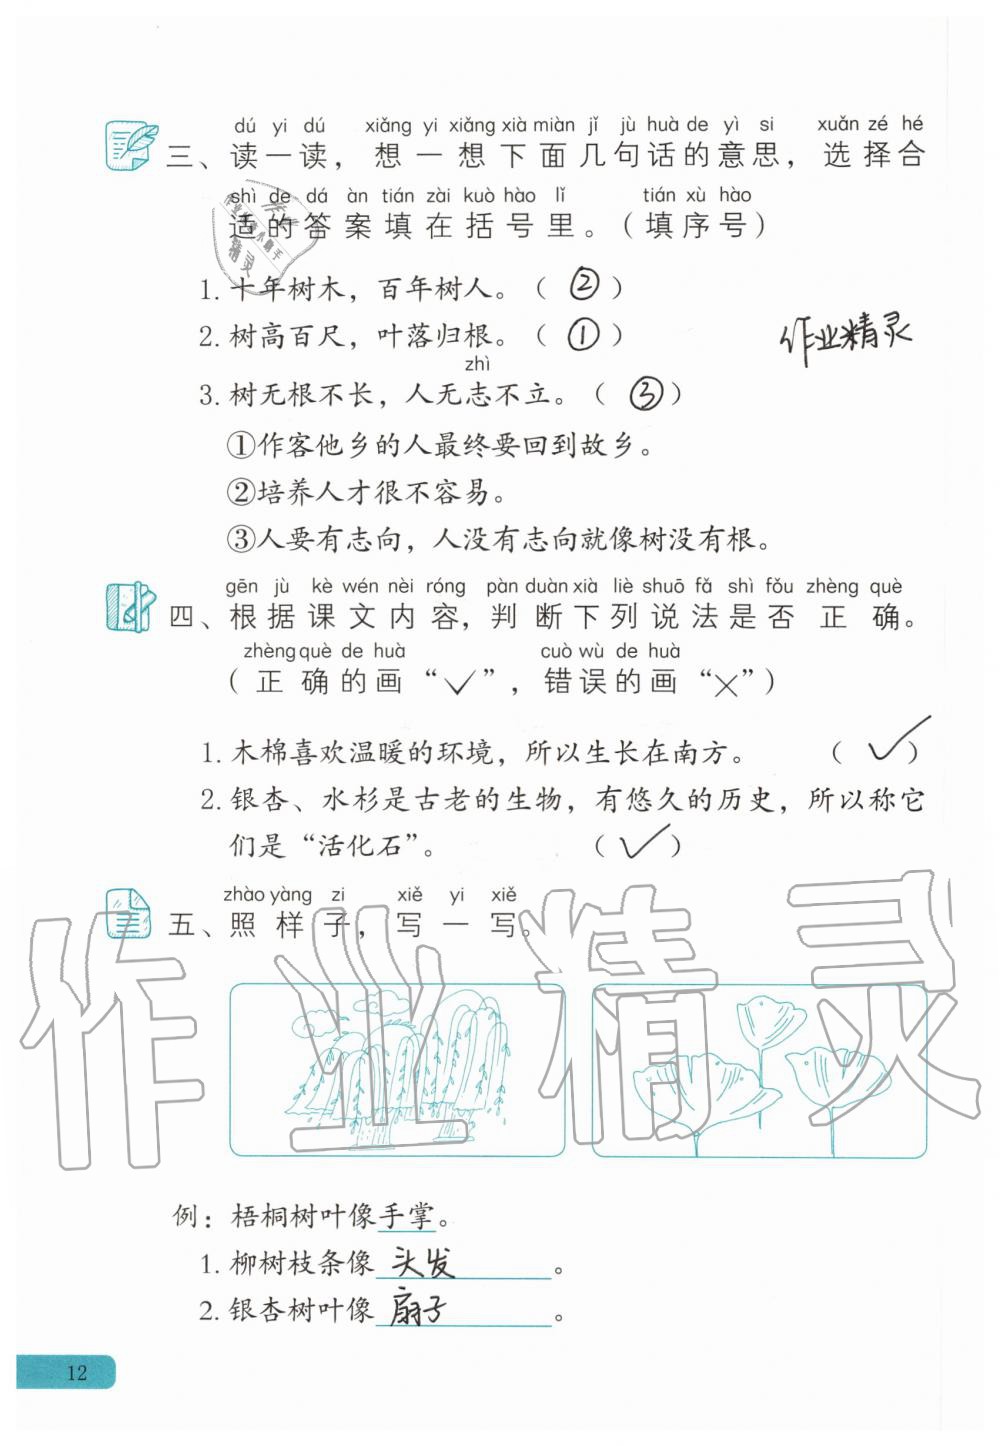 dú yi dú xiǎng yi xiǎng xià miàn jǐ jù huà de yì si xuǎn zé hé
三、读一读，想一想下面几句话的意思，选择合
shì de dá àn tián zài kuò hào lǐ tián xù hào
适的答案填在括号里。（填序号）
1. 十年树木，百年树人。（ ② ）
2. 树高百尺，叶落归根。（ ① ）
作业精灵
zhì
3. 树无根不长，人无志不立。（ ③ ）
①作客他乡的人最终要回到故乡。
②培养人才很不容易。
③人要有志向，人没有志向就像树没有根。
gēn jù kè wén nèi róng pàn duàn xià liè shuō fǎ shì fǒu zhèng què
四、根据课文内容，判断下列说法是否正确。
zhèng què de huà cuò wù de huà
（正确的画“✓”，错误的画“✕”）
1. 木棉喜欢温暖的环境，所以生长在南方。（ ✓ ）
2. 银杏、水杉是古老的生物，有悠久的历史，所以称它
们是“活化石”。（ ✓ ）
zhào yàng zi xiě yi xiě
五、照样子，写一写。
作业精灵
例：梧桐树叶像手掌。
1. 柳树枝条像 头发 。
2. 银杏树叶像 扇子 。
12